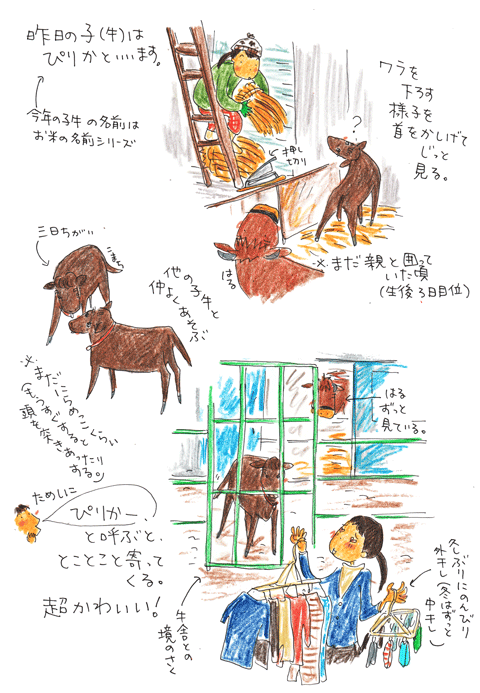 昨日の子(牛)は
ぴりかといいます。
今年の子牛の名前は
お米の名前シリーズ
押し
切り
?
ワラを
下ろす
様子を
首をかしげて
じっと
見る。
はる
※まだ親と囲って
いた頃
(生後3日目位)
三日ちがい
こまち
他の子牛と
仲よくあそぶ
※まだにらめっこくらい
頭を突きあったり
する。)
ためしに
ぴりかー、
と呼ぶと、
とことこと寄って
くる。
超かわいい!
はる
ずっと
見ている。
牛舎との
境のさく
久しぶりにのんびり
外干し(冬はずっと
中干し)